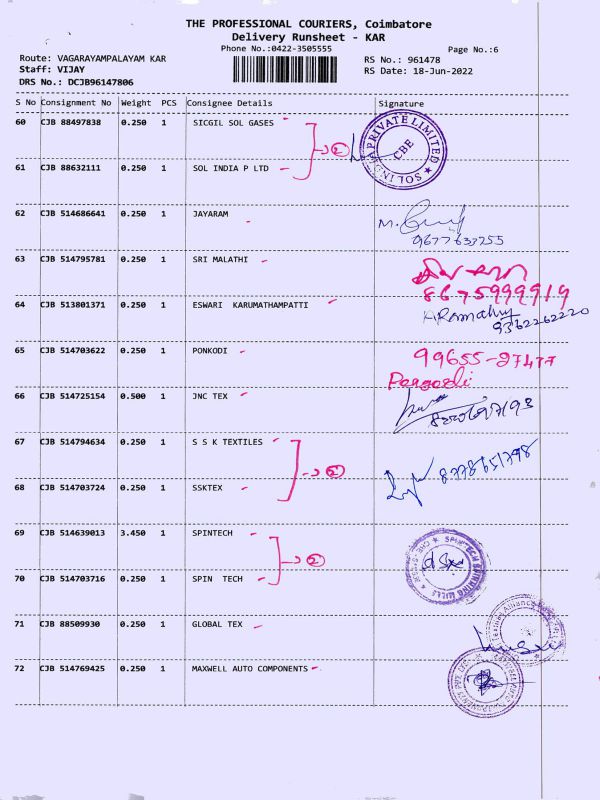 THE PROFESSIONAL COURIERS, Coimbatore
Delivery Runsheet - KAR
Phone No.:0422-3505555
Page No.:6
Route: VAGARAYAMPALAYAM KAR
RS No.: 961478
Staff: VIJAY
RS Date: 18-Jun-2022
DRS No.: DCJB96147806
S No Consignment No Weight PCS Consignee Details Signature
60 CJB 88497838 0.250 1 SICGIL SOL GASES
2
PRIVATE LIMITED
CBE
61 CJB 88632111 0.250 1 SOL INDIA P LTD
62 CJB 514686641 0.250 1 JAYARAM
63 CJB 514795781 0.250 1 SRI MALATHI
8675999919
64 CJB 513801371 0.250 1 ESWARI KARUMATHAMPATTI
9362262220
65 CJB 514703622 0.250 1 PONKODI
99655-27477
66 CJB 514725154 0.500 1 JNC TEX
67 CJB 514794634 0.250 1 S S K TEXTILES
2
68 CJB 514703724 0.250 1 SSKTEX
69 CJB 514639013 3.450 1 SPINTECH
2
SPINTECH SPINNING MILLS
70 CJB 514703716 0.250 1 SPIN TECH
71 CJB 88509930 0.250 1 GLOBAL TEX
72 CJB 514769425 0.250 1 MAXWELL AUTO COMPONENTS